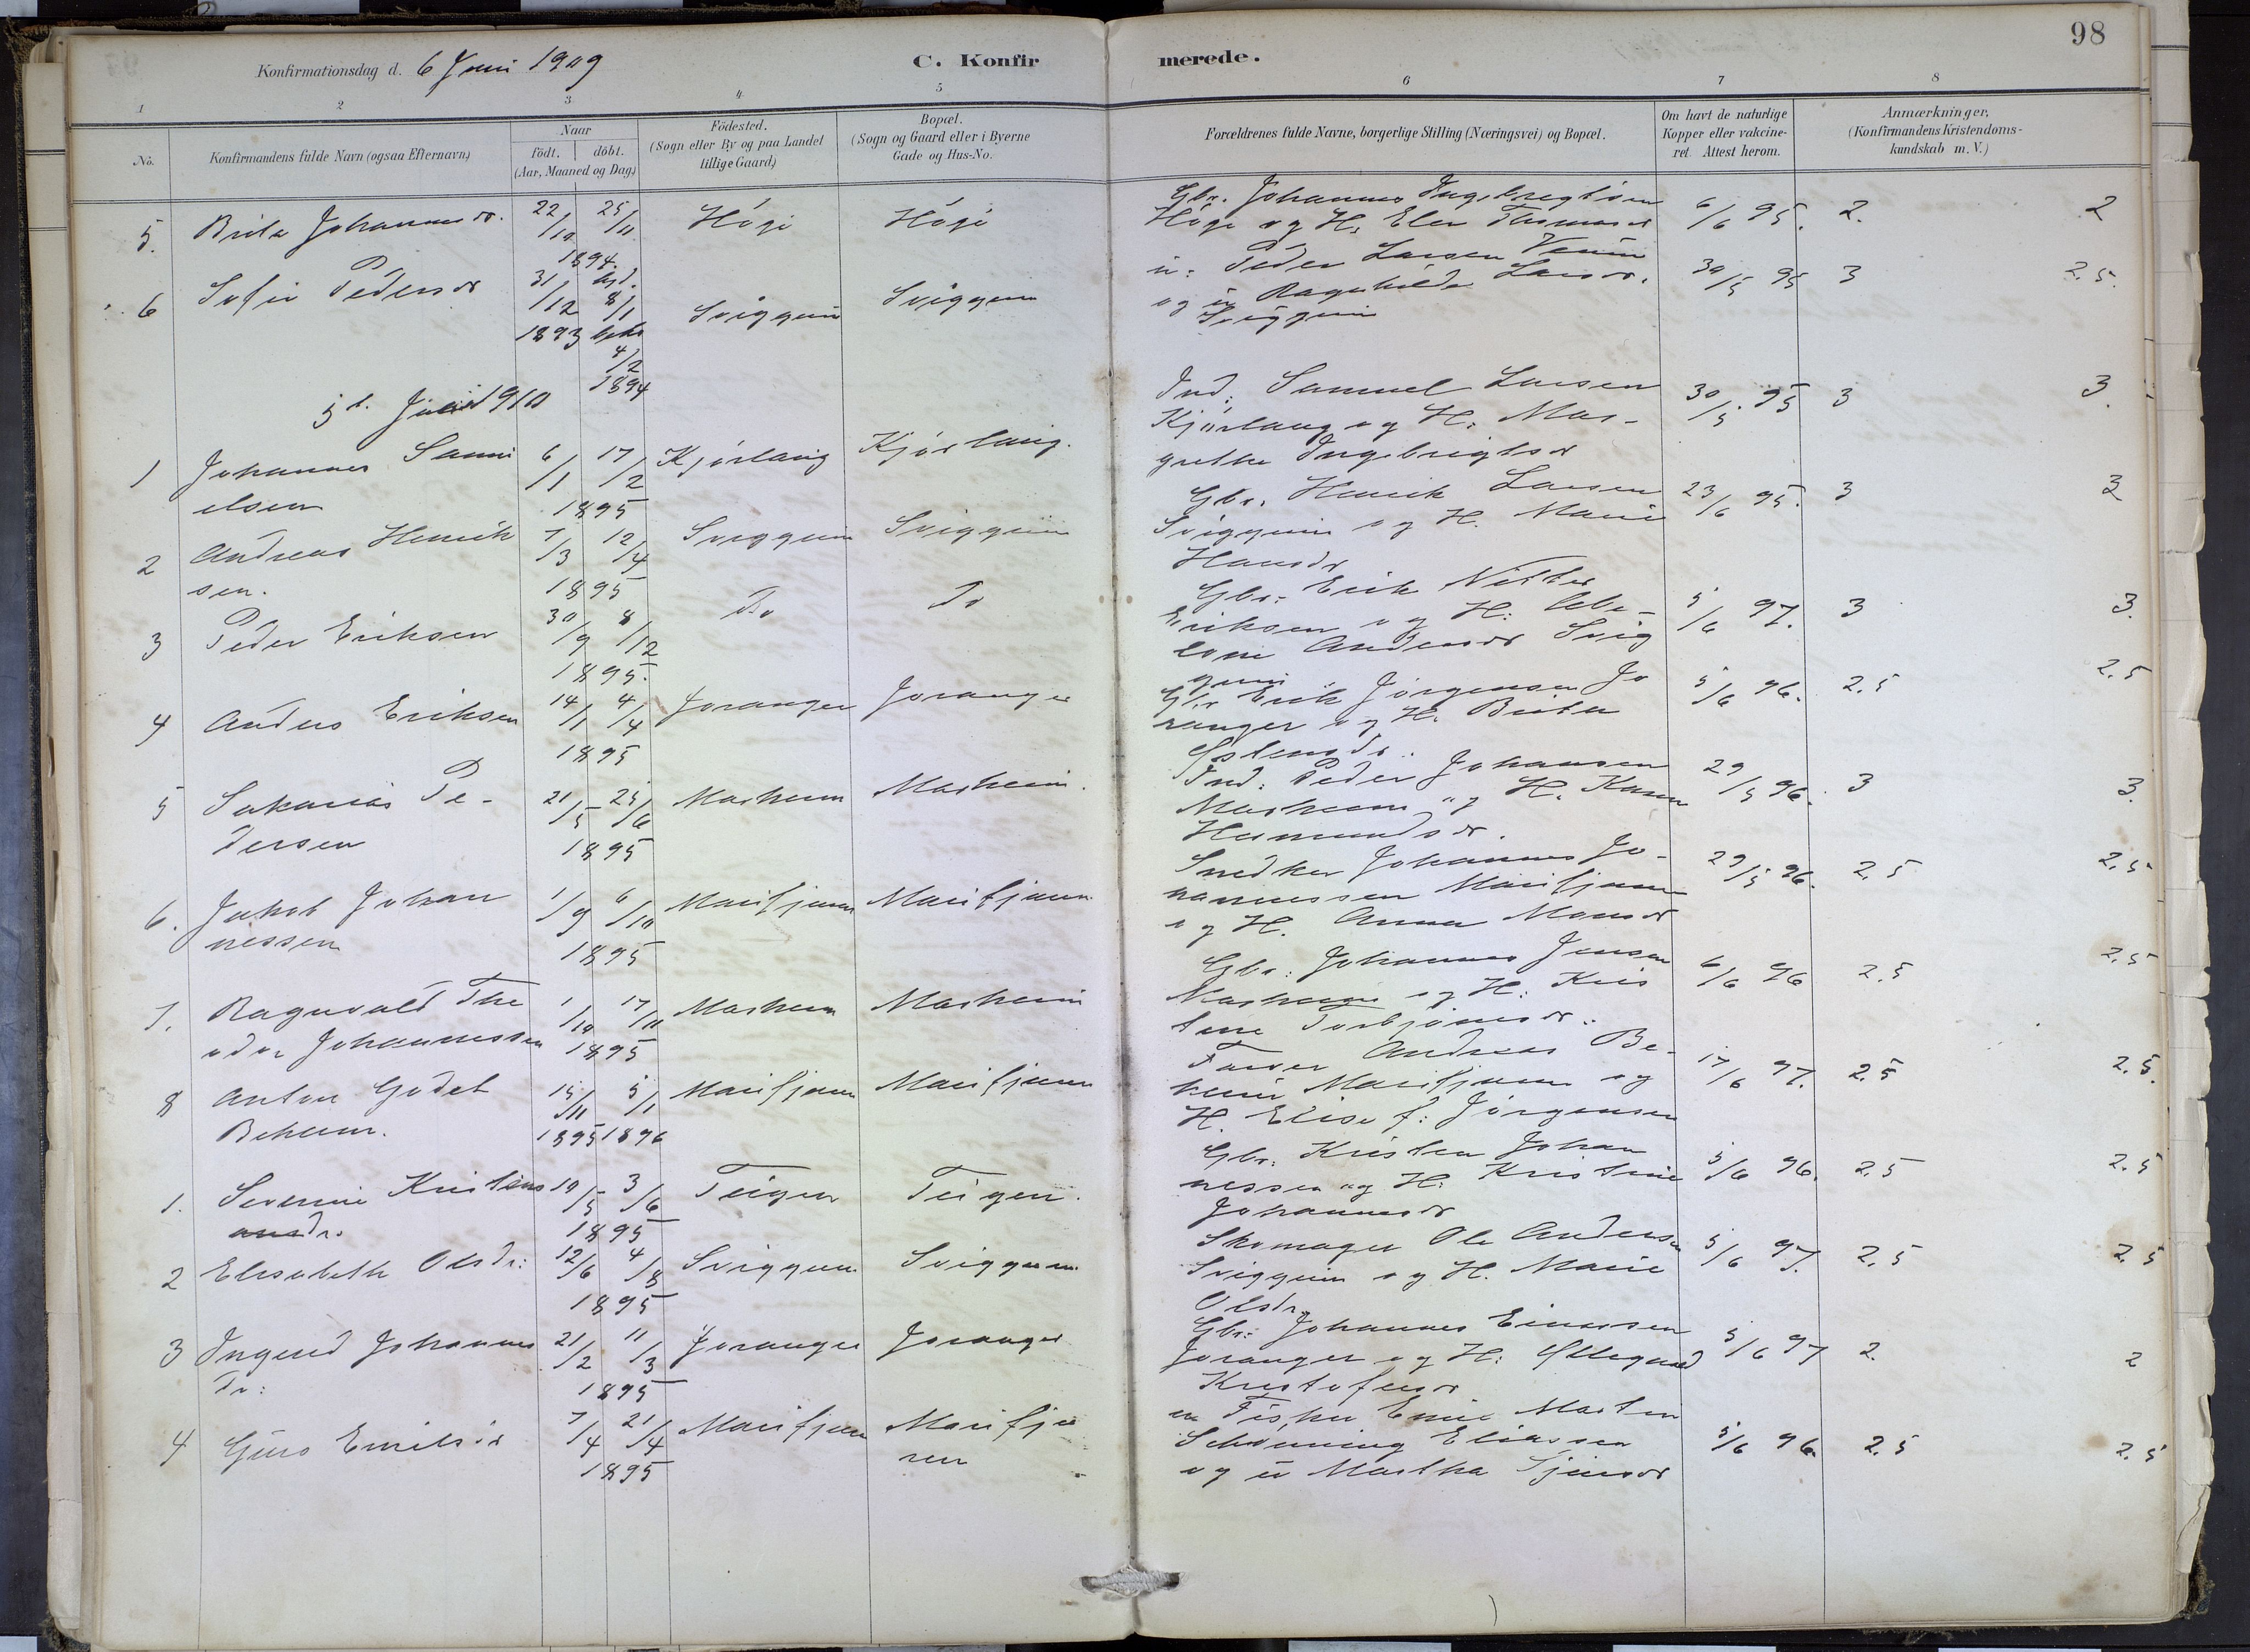 98
Konfirmationsdag d. 6 Juni 1909
C. Konfirmerede.
1 2 3 4 5 6 7 8
No.
Konfirmandens fulde Navn (ogsaa Efternavn)
Naar
födt. döbt.
(Aar, Maaned og Dag)
Födested.
(Sogn eller By og paa Landet
tillige Gaard)
Bopæl.
(Sogn og Gaard eller i Byerne
Gade og Hus-No.
Forældrenes fulde Navne, borgerlige Stilling (Næringsvei) og Bopæl.
Om havt de naturlige
Kopper eller vakcine-
ret. Attest herom.
Anmærkninger,
(Konfirmandens Kristendoms-
kundskab m. V.)
5. Brita Johannesdr. 22/10 25/11 1894. Högi Högi
Gbr. Johannes Ingebregtsen
Högi og H. Elen Thomasdr 6/6 95. 2. 2
6 Sofie Pedersdr 31/12 1893 hjd. 8/1 bekr 4/2 1894 Sviggum Sviggum
u: Peder Larsen
og u Ragnhilda Larsdr. 30/5 95 3 2.5.
Sviggum
5t. Juni 1910
1 Johannes Samu
elsen 6/1 17/2 1895 Kjörlaug Kjörlaug.
Ind: Samuel Larsen
Kjörlaug og H: Mar-
grethe Ingebrigtsdr 30/5 95 3 3.
2 Andreas Henrik
sen. 7/3 12/4 1895 Sviggum Sviggum
Gbr. Henrik Larsen
Sviggum og H. Marie
Hansdr 23/6 95. 3 3
3 Peder Eriksen 30/9 8/12 1895. Do Do
Gbr: Erik
Eriksen og H:
Andersdr Svig
gum 5/6 97. 3 3.
4 Anders Eriksen 14/1 4/4 1895 Joranger Joranger
Gbr Erik Jörgensen Jo
ranger og H. Brita
5/6 96. 2.5 2.5
5 Sakarias Pe-
dersen 21/5 25/6 1895 Marheim Marheim.
Ind: Peder Johansen
Marheim og H. Karen
29/5 96. 3 3.
6. Jakob Johan
nessen 1/9 6/10 1895 Marifjæren Marifjæren
Snedker Johannes Jo-
hannessen Marifjæren
og H. Anna Monsdr 29/5 96. 2.5 2.5
7. Ragnvald The
odor Johannessen 1/10 17/11 1895 Marheim Marheim
Gbr: Johannes Jensen
Marheim og H: Kris
tine Torbjörnsdr: 6/6 96 2.5 2.5
8 Anton Godet
Beheim. 15/11 1895 5/1 1896 Marifjæren Marifjæren
Farver Andreas Be-
heim Marifjæren og
H. Elise f: Jörgensen 17/6 97. 2.5 2.5.
1. Severine Kristens
dr. 10/5 3/6 1895 Teigen Teigen.
Gbr: Kristen Johan
nessen og H: Kristine
Johannesdr 5/6 96. 2.5 2.5
2 Elisabeth Olsdr: 12/6 4/8 1895 Sviggum Sviggum
Skomager Ole Andersen
Sviggum og H. Marie
Olsdr. 5/6 97. 2.5 2.5
3 Ingerid Johannes
dr: 21/2 11/3 1895 Joranger Joranger
Gbr: Johannes Einarsen
Joranger og H: Ollegaard
Kristofersdr 5/6 97 2. 2
4 Guro Emilsdr 7/4 21/4 1895 Marifjæren Marifjæ
ren
u Fisker Emil Martin
Schönning Eliassen
og u Martha 5/6 96. 2.5 2.5